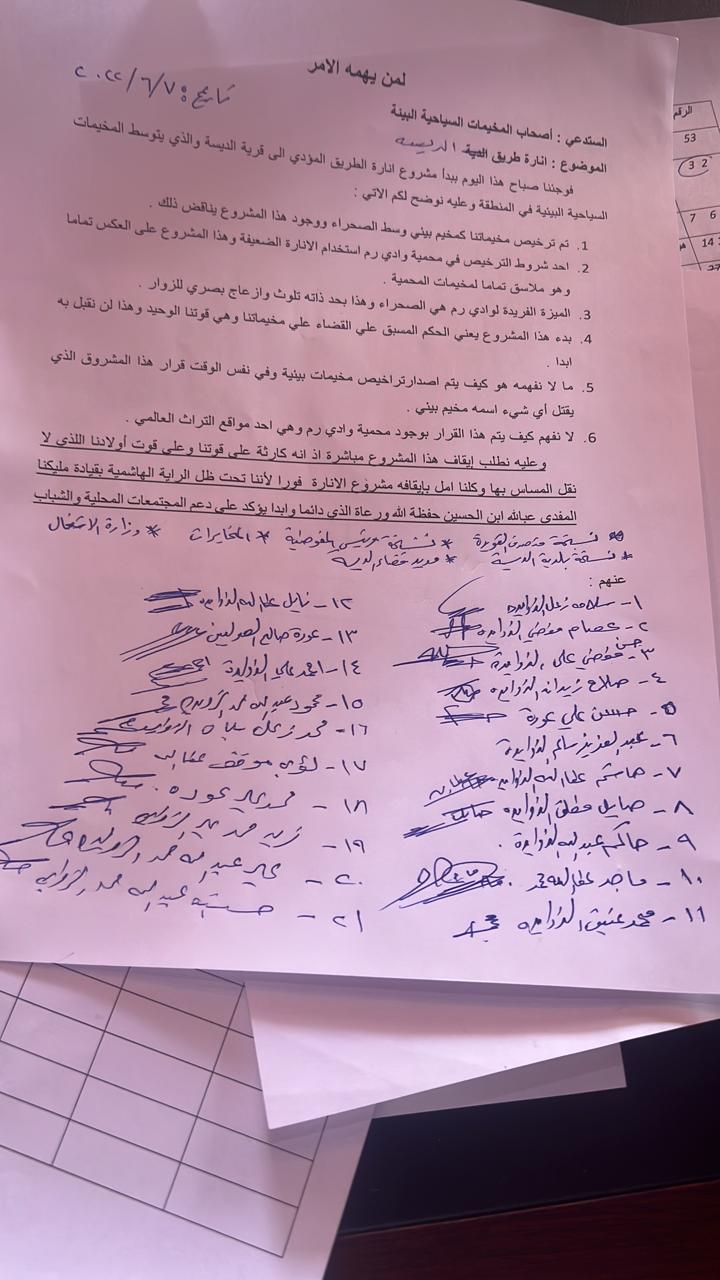 لمن يهمه الامر
تاريخ: ٢٠٢٢/٦/٧
الستدعي : أصحاب المخيمات السياحية البيئة
الموضوع : انارة طريق الديسه
فوجئنا صباح هذا اليوم ببدأ مشروع انارة الطريق المؤدي الى قرية الديسة والذي يتوسط المخيمات
السياحية البيئية في المنطقة وعليه نوضح لكم الاتي :
1. تم ترخيص مخيماتنا كمخيم بيئي وسط الصحراء ووجود هذا المشروع يناقض ذلك .
2. احد شروط الترخيص في محمية وادي رم استخدام الانارة الضعيفة وهذا المشروع على العكس تماما
وهو ملاسق تماما لمخيمات المحمية .
3. الميزة الفريدة لوادي رم هي الصحراء وهذا بحد ذاته تلوث وازعاج بصري للزوار .
4. بدء هذا المشروع يعني الحكم المسبق علي القضاء علي مخيماتنا وهي قوتنا الوحيد وهذا لن نقبل به
ابدا .
5. ما لا نفهمه هو كيف يتم اصدارتراخيص مخيمات بيئية وفي نفس الوقت قرار هذا المشروق الذي
يقتل أي شيء اسمه مخيم بيئي .
6. لا نفهم كيف يتم هذا القرار بوجود محمية وادي رم وهي احد مواقع التراث العالمي .
وعليه نطلب إيقاف هذا المشروع مباشرة اذ انه كارثة على قوتنا وعلي قوت أولادنا اللذي لا
نقل المساس بها وكلنا امل بإيقافه مشروع الانارة فورا لأننا تحت ظل الراية الهاشمية بقيادة مليكنا
المفدى عبالله ابن الحسين حفظة الله ورعاة الذي دائما وابدا يؤكد على دعم المجتمعات المحلية والشباب
* نسخة متصرف القويرة * نسخة رئيس المفوضية * المخابرات * وزارة الاشغال
* نسخة بلدية الديسة * مدير قضاء الديسه
عنهم :
١- سلامه زعل الزوايده
٢- عصام مفضي الزوايده
٣- مفضي علي الزوايدة
٤- صلاح زيدان الزوايده
٥- حسن علي عودة
٦- عبد العزيز سالم الزوايدة
٧- هاشم عطا الله الزوايده
٨- صايل مطلق الزوايده
٩- حاكم عبد الله الزوايدة .
١٠- ماجد عطا الله
١١- محمد عتيق الزوايده
١٢- نايل عطا الله الزوايده
١٣- عودة صالح
١٤- احمد علي الزوايدة
١٥- محمود عبد الله محمد الزوايده
١٦- محمد زعل الزوايده
١٧- لؤي موفق عطا الله
١٨- محمد عودة .
١٩- زيد محمد الزوايده
٢٠- عبد الله محمد الزوايده
٢١- عبد الله محمد الزوايده
الرقم
53
3 2
7 6
14
27